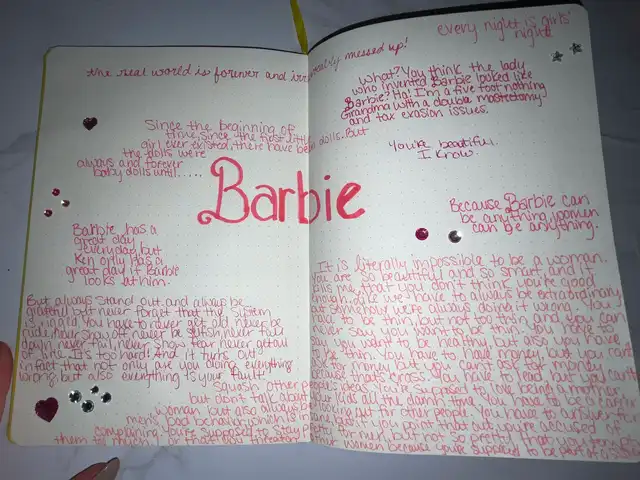 the real world is forever and irrevocably messed up!
every night is girls'
night!
What? You think the lady
who invented Barbie looked like
Barbie? Ha! I'm a five foot nothing
Grandma with a double mastectomy
and tax evasion issues.
Since the beginning of
time, since the first little
girl ever existed, there have been dolls. But
the dolls were
always and forever
baby dolls until.....
You're beautiful.
I know.
Barbie
Because Barbie can
be anything, women
can be anything.
Barbie has a
great day
everyday, but
Ken only has a
great day if Barbie
looks at him.
It is literally impossible to be a woman.
You are so beautiful and so smart, and it
kills me that you don't think you're good
enough. Like we have to always be extraordinary
but somehow we're always doing it wrong. You
have to be thin but not too thin and you can
never say you want to be thin. You have to
say you want to be healthy, but also you have
to be thin. You have to have money, but you can't
ask for money
because that's crass. You have to lead, but you can't
squash other people's ideas. You're supposed to love being a mother
but don't talk about your kids all the damn time. You have to be a career
woman but also always be looking out for other people. You have to answer for
men's bad behavior, which is insane, but if you point that out, you're accused of
complaining. You're supposed to stay pretty for men, but not so pretty that you tempt
them too much or that you threaten other women because you're supposed to be part of a sisterhood
But always stand out and always be
grateful but never forget that the system
is rigged. You have to never get old, never be
rude, never show off, never be selfish, never fall
down, never fail, never show fear, never get out
of line. It's too hard! And it turns out
in fact that not only are you doing everything
wrong, but also everything is your fault!